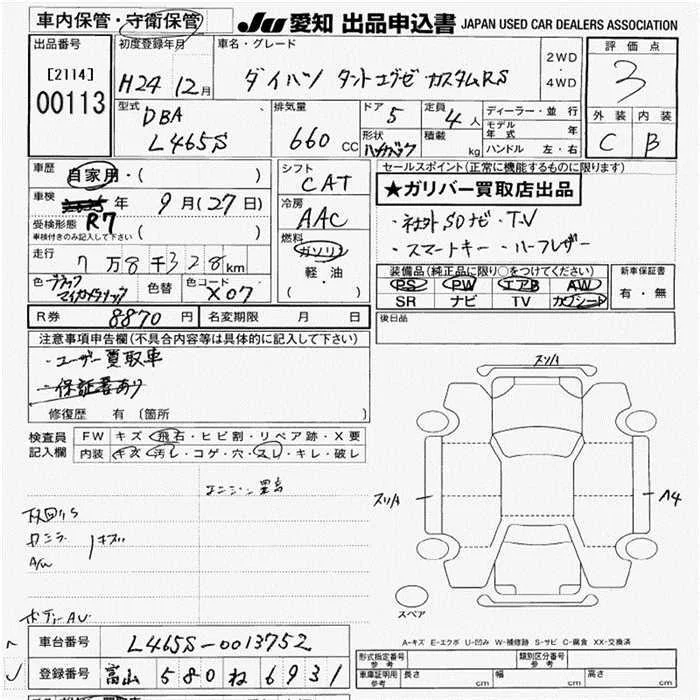 車内保管・守衛保管
JU 愛知 出品申込書 JAPAN USED CAR DEALERS ASSOCIATION
出品番号
[2114]
00113
初度登録年月
H24 12月
車名・グレード
ダイハツ タントエグゼ カスタムRS
2WD
4WD
評価点
3
外装 内装
C B
型式
DBA
L465S
排気量
660 CC
ドア
5
定員
4人
形状
積載
kg
ディーラー・並行
モデル年式 年
ハンドル 左・右
車歴
自家用・( )
車検
R7 年 9月(27日)
受検形状
車検付きのみ記入して下さい ( )
走行
7万8千328km
色 ブラックマイカメタリック
色替
色コード X07
シフト
CAT
冷房
AAC
燃料
ガソリン
軽・油
( )
セールスポイント(正常に機能するものに限ります)
★ガリバー買取店出品
・社外SDナビ・TV
・スマートキー・ハーフレザー
装備品(純正品に限り○をつけてください)
PS PW エアB AW
SR ナビ TV カワシート
新車保証書
有・無
R券 8870円
名変期限 月 日
後日品
注意事項申告欄(不具合内容等は具体的に記入して下さい)
・ユーザー買取車
・保証書あり
修復歴 有 〔箇所
検査員記入欄
FW キズ・飛石・ヒビ割・リペア跡・X要
内装 キズ・汚レ・コゲ・穴・スレ・キレ・破レ
スリA
スリA
A4
スペア
A-キズ E-エクボ U-凹み W-補修跡 S-サビ C-腐食 XX-交換済
車台番号 L465S-0013752
登録番号 富山 580 ね 6931
形式指定番号
参考
類別区分番号
参考
車庫証明用
参考
長さ cm
幅 cm
高さ cm